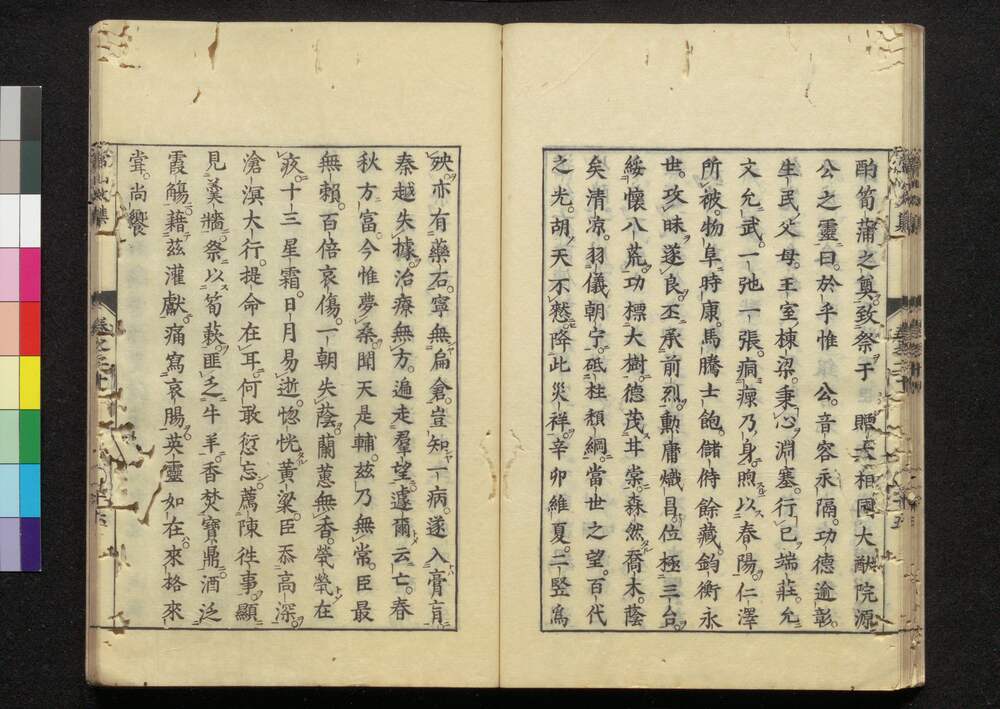 酌筍蒲之奠。致祭于 贈大相國大猷院源
公之靈。曰。於乎惟 公。音容永隔。功德逾彰。
生民父母。王室棟梁。秉心淵塞。行已端莊。允
文允武。一弛一張。痌瘝乃身。煦以春陽。仁澤
所被。物阜時康。馬騰士飽。儲偫餘藏。鈞衡永
世。攻昧遂良。丕承前烈。勳庸熾昌。位極三台。
綏懷八荒。功標大樹。德茂甘棠。森然喬木。蔭
矣清凉。羽儀朝宁。砥柱頽綱。當世之望。百代
之光。胡天不憖。降此災祥。辛卯維夏。二竪爲
殃。亦有藥石。寧無扁倉。豈知一病。遂入膏肓。
秦越失據。治療無方。遍走羣望。遽爾云亡。春
秋方富。今惟夢桑。聞天是輔。茲乃無常。臣最
無賴。百倍哀傷。一朝失蔭。蘭蕙無香。煢煢在
疚。十三星霜。日月易逝。惚恍黄粱。臣忝高深。
滄溟大行。提命在耳。何敢愆忘。薦陳徃事。顯
見羹牆。祭以筍蔌。匪乏牛羊。香焚寶鼎。酒泛
霞觴。藉茲灌獻。痛寫哀腸。英靈如在。來格來
甞。尚饗